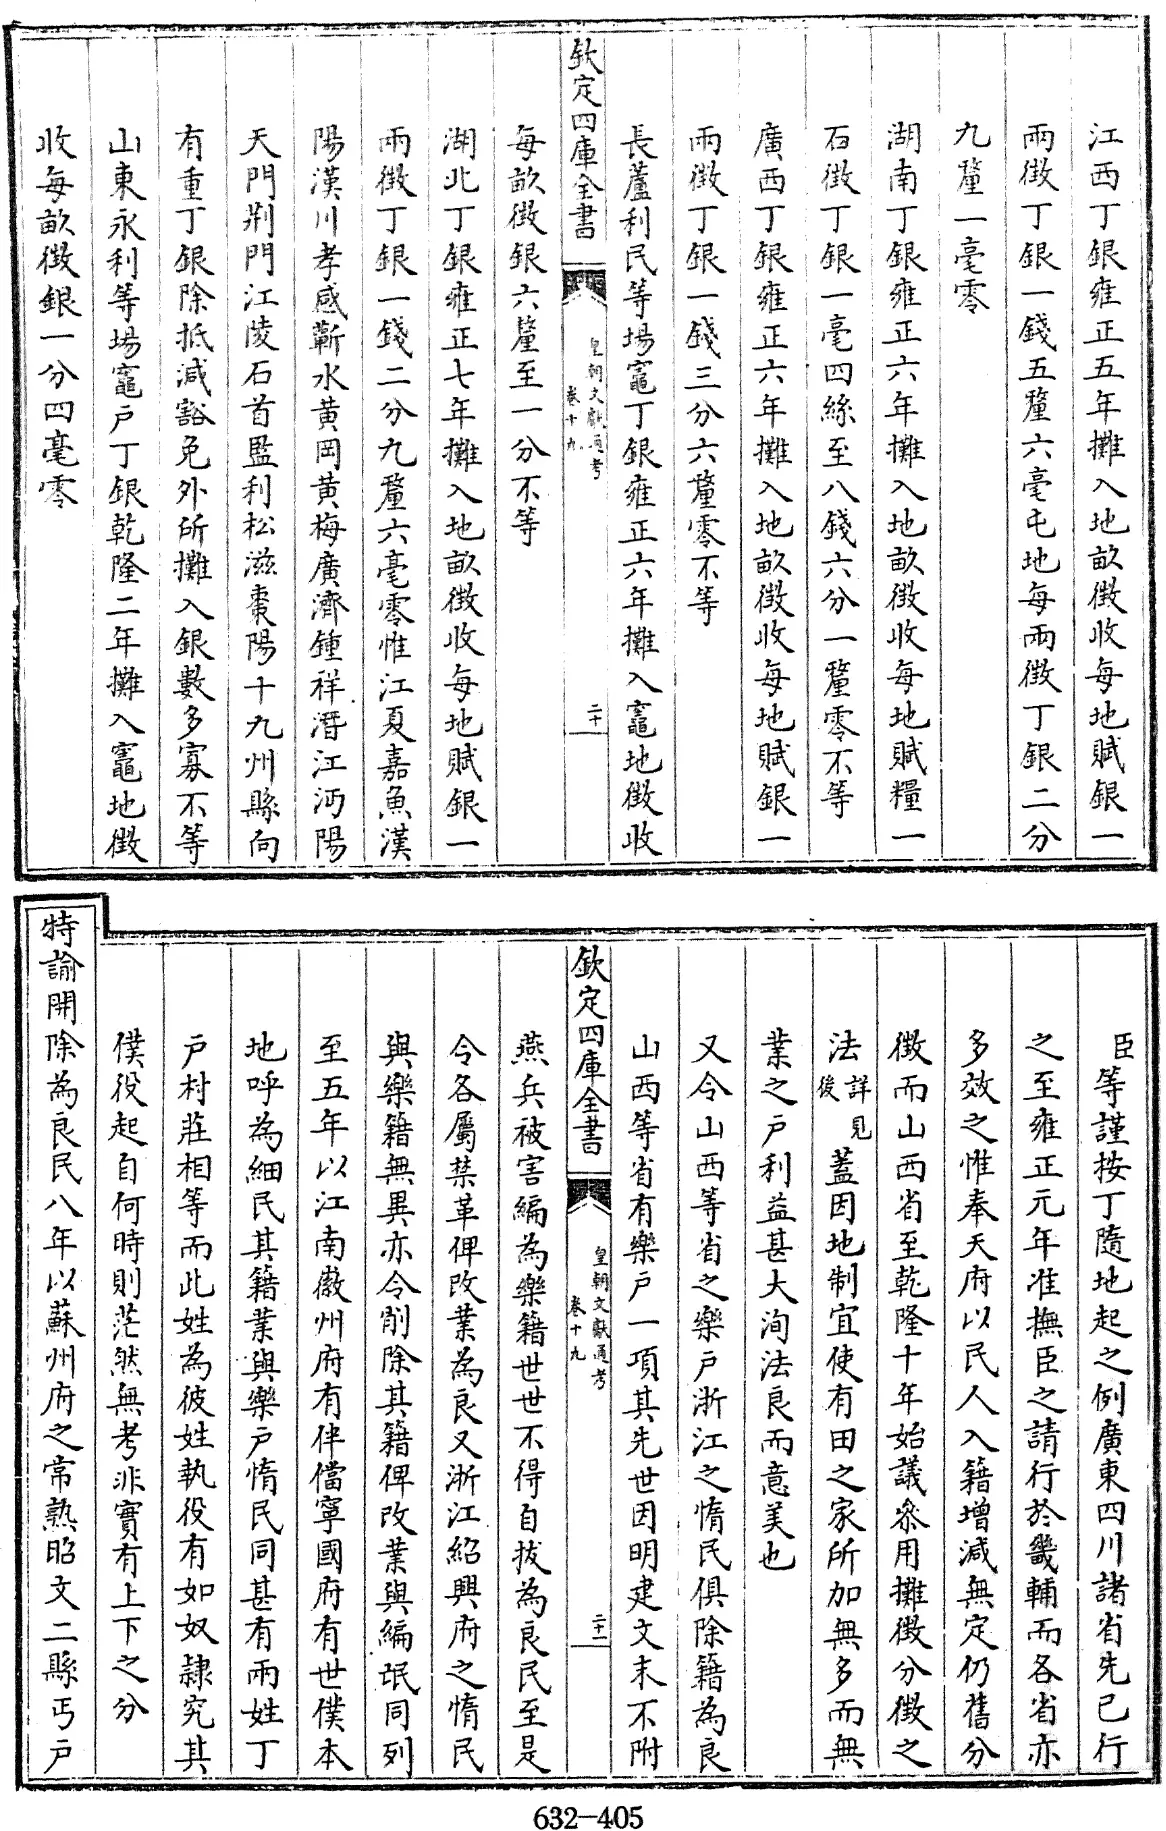 江西丁銀雍正五年攤入地畝徴收每地賦銀一
兩徴丁銀一錢五釐六毫屯地每兩徴丁銀二分
九釐一毫零
湖南丁銀雍正六年攤入地畝徴收每地賦糧一
石徴丁銀一毫四絲至八錢六分一釐零不等
廣西丁銀雍正六年攤入地畝徴收每地賦銀一
兩徴丁銀一錢三分六釐零不等
長蘆利民等場竈丁銀雍正六年攤入竈地徴收
欽定四庫全書
皇朝文獻通考
卷十九
二十
每畝徴銀六釐至一分不等
湖北丁銀雍正七年攤入地畝徴收每地賦銀一
兩徴丁銀一錢二分九釐六毫零惟江夏嘉魚漢
陽漢川孝感蘄水黄岡黄梅廣濟鍾祥潛江沔陽
天門荆門江陵石首監利松滋棗陽十九州縣向
有重丁銀除抵減豁免外所攤入銀數多寡不等
山東永利等場竈戸丁銀乾隆二年攤入竈地徴
收每畝徴銀一分四毫零
臣等謹按丁隨地起之例廣東四川諸省先已行
之至雍正元年准撫臣之請行於畿輔而各省亦
多效之惟奉天府以民人入籍增減無定仍舊分
徴而山西省至乾隆十年始議叅用攤徴分徴之
法詳見後蓋因地制宜使有田之家所加無多而無
業之戸利益甚大洵法良而意美也
又令山西等省之樂戸浙江之惰民俱除籍為良
山西等省有樂戸一項其先世因明建文末不附
欽定四庫全書
皇朝文獻通考
卷十九
二十一
燕兵被害編為樂籍世世不得自拔為良民至是
令各屬禁革俾改業為良又浙江紹興府之惰民
與樂籍無異亦令削除其籍俾改業與編氓同列
至五年以江南徽州府有伴儅寧國府有世僕本
地呼為細民其籍業與樂戸惰民同甚有兩姓丁
戸村莊相等而此姓為彼姓執役有如奴隷究其
僕役起自何時則茫然無考非實有上下之分
特諭開除為良民八年以蘇州府之常熟昭文二縣丐戸
632-405